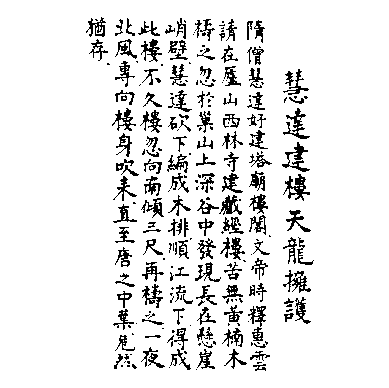 慧達建樓天龍擁護
隋僧慧達好建塔廟樓閣文帝時釋惠雲
請在廬山西林寺建藏經樓苦無黃楠木
禱之忽於巢山上深谷中發現長在懸崖
峭壁慧達砍下編成木排順江流下得成
此樓不久樓忽向南傾三尺再禱之一夜
北風專向樓身吹來直至唐之中葉危然
猶存